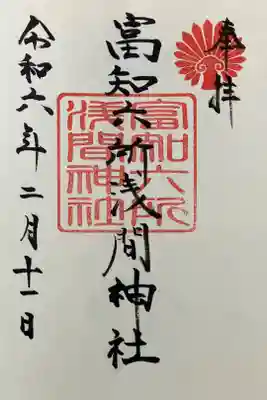 奉拝
富知六所浅間神社
富知六所
浅間神社
令和六年二月十一日